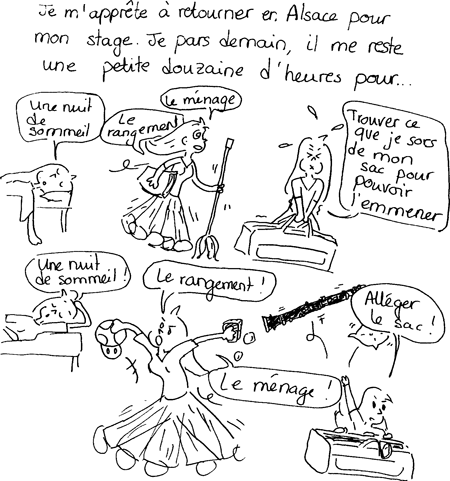 Je m'apprête à retourner en Alsace pour
mon stage. Je pars demain, il me reste
une petite douzaine d'heures pour...
Une nuit
de
sommeil
Le
rangement
Le ménage
Trouver ce
que je sors
de mon
sac pour
pouvoir
l'emmener
Une nuit
de sommeil !
Le rangement !
Alléger
le sac !
Le ménage !